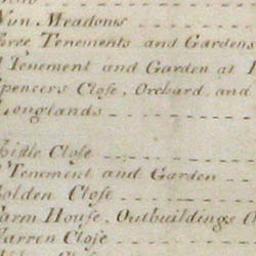 Nun Meadows
Three Tenements and Gardens
Tenement and Garden at
Spencers Close, Orchard and
Longlands
Thistle Close
Tenement and Garden
Golden Close
Farm House, Outbuildings
Warren Close